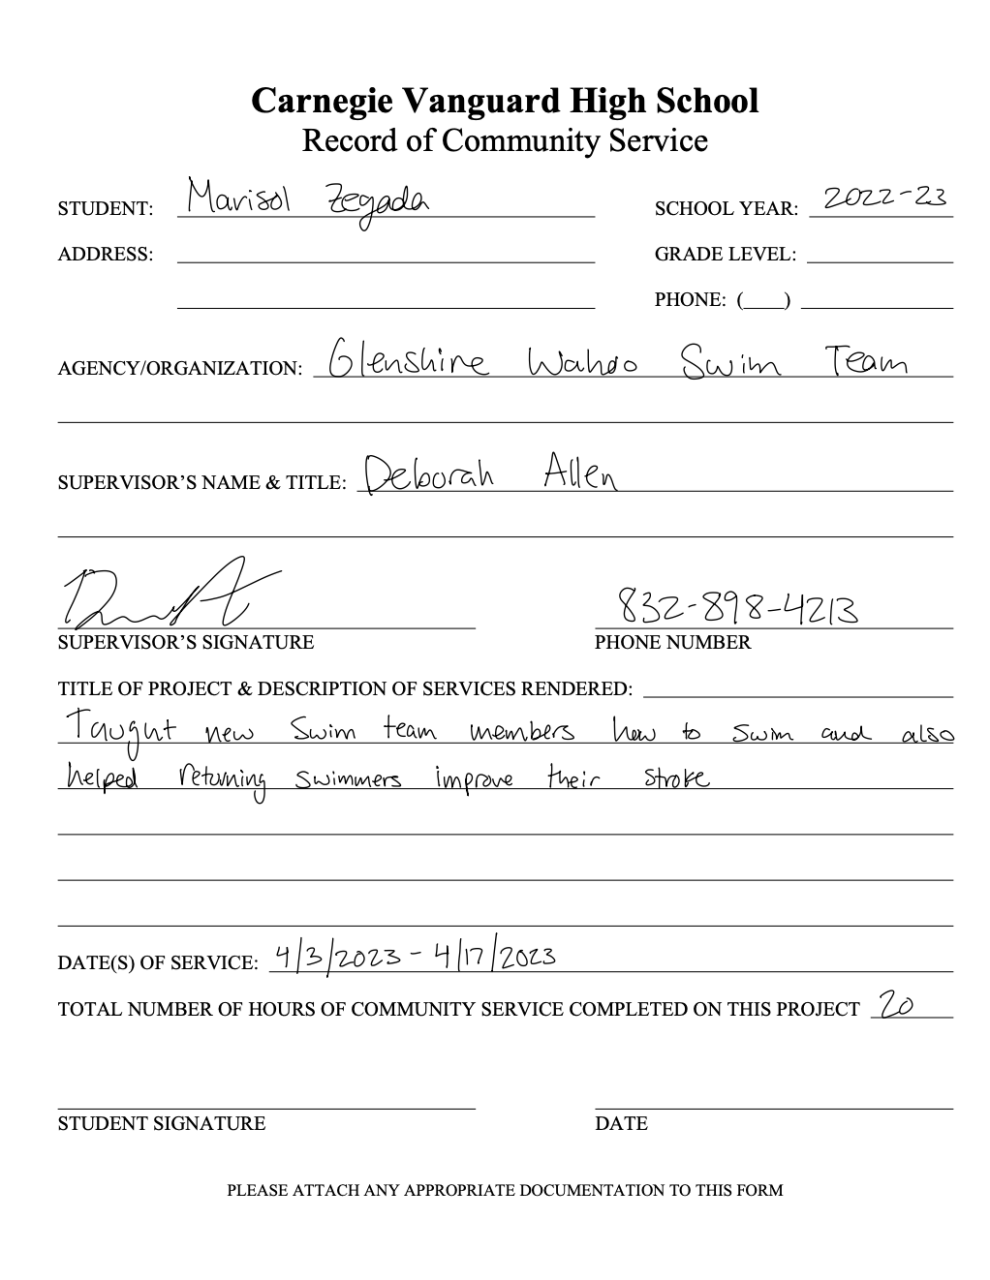 Carnegie Vanguard High School
Record of Community Service
STUDENT: Marisol Zegada SCHOOL YEAR: 2022-23
ADDRESS: GRADE LEVEL:
PHONE: (___)
AGENCY/ORGANIZATION: Glenshire Wahoo Swim Team
SUPERVISOR'S NAME & TITLE: Deborah Allen
832-898-4213
SUPERVISOR'S SIGNATURE PHONE NUMBER
TITLE OF PROJECT & DESCRIPTION OF SERVICES RENDERED:
Taught new Swim team members how to swim and also
helped returning swimmers improve their stroke
DATE(S) OF SERVICE: 4/3/2023 - 4/17/2023
TOTAL NUMBER OF HOURS OF COMMUNITY SERVICE COMPLETED ON THIS PROJECT 20
STUDENT SIGNATURE DATE
PLEASE ATTACH ANY APPROPRIATE DOCUMENTATION TO THIS FORM